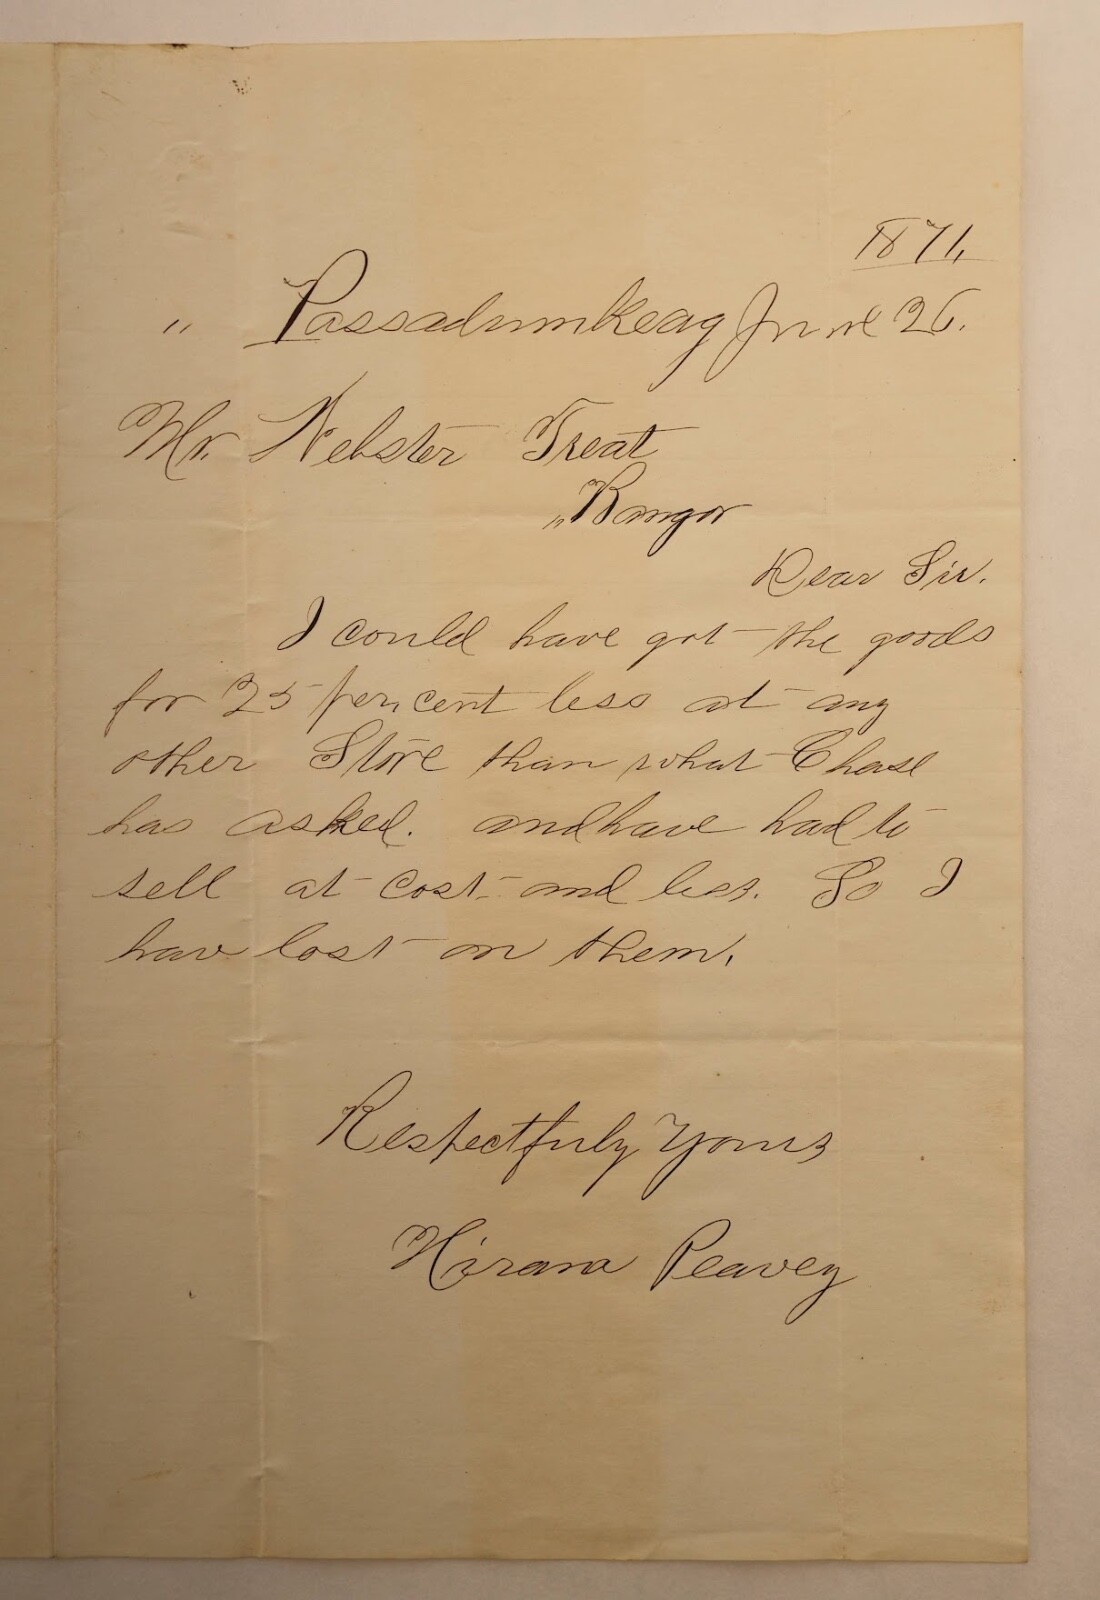 1871,
" Passadumkeag June 26.
Mr. Webster Treat
" Bangor
Dear Sir.
I could have got the goods
for 25 per, cent less at any
other Store than what Chase
has asked. and have had to
sell at cost and less. So I
hav lost on them,
Respectfuly Yours
Hiram Peavey